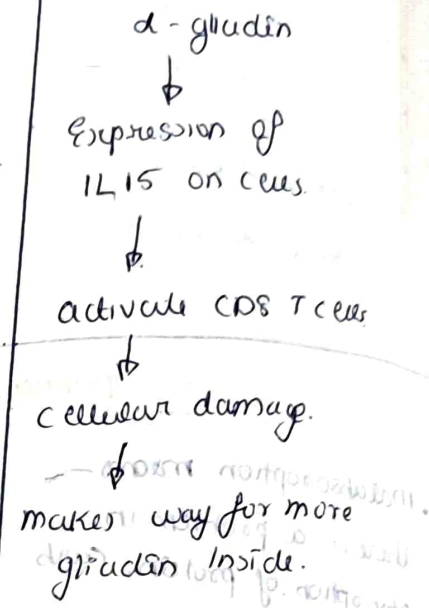 α-gliadin
Expression of
IL15 on cells.
activate CD8 T cells.
cellular damage.
makes way for more
gliadin inside.